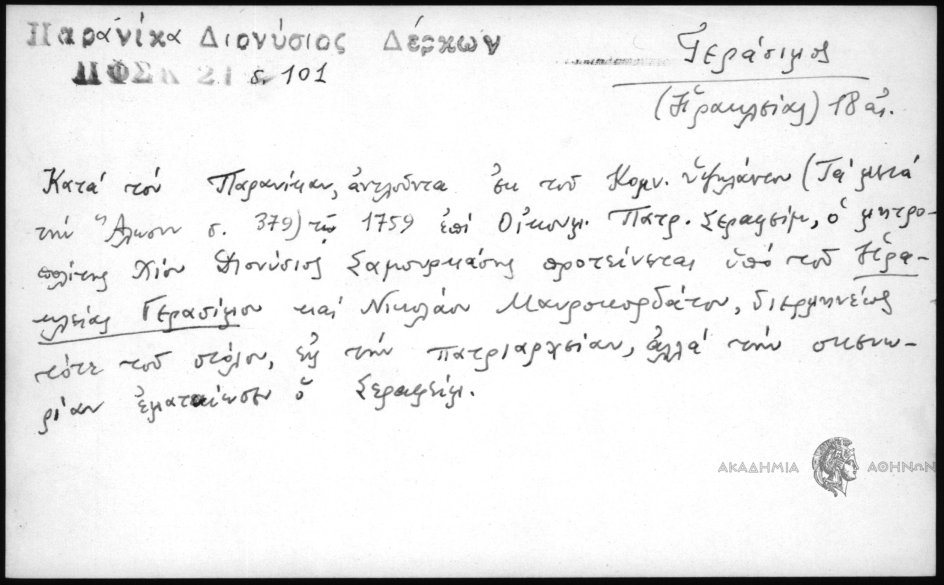 Παρανίκα Διονύσιος Δέρκων
ΠΦΣΚ 21 σ. 101
Γεράσιμος
(Ἡρακλείας) 18 αἰ.
Κατά τόν Παρανίκαν, ἀντλοῦντα ἐκ τοῦ Κομν. Ὑψηλάντου (Τά μετά
τήν Ἅλωσιν σ. 379) τῷ 1759 ἐπί Οἰκουμ. Πατρ. Σεραφείμ, ὁ μητρο-
πολίτης Χίου Διονύσιος Σαμουρκάσης προτείνεται ὑπό τοῦ Ἡρα-
κλείας Γερασίμου καί Νικολάου Μαυροκορδάτου, διερμηνέως
τότε τοῦ στόλου, εἰς τήν πατριαρχείαν, ἀλλά τήν σκευω-
ρίαν ἐματαίωσεν ὁ Σεραφείμ.
ΑΚΑΔΗΜΙΑ ΑΘΗΝΩΝ